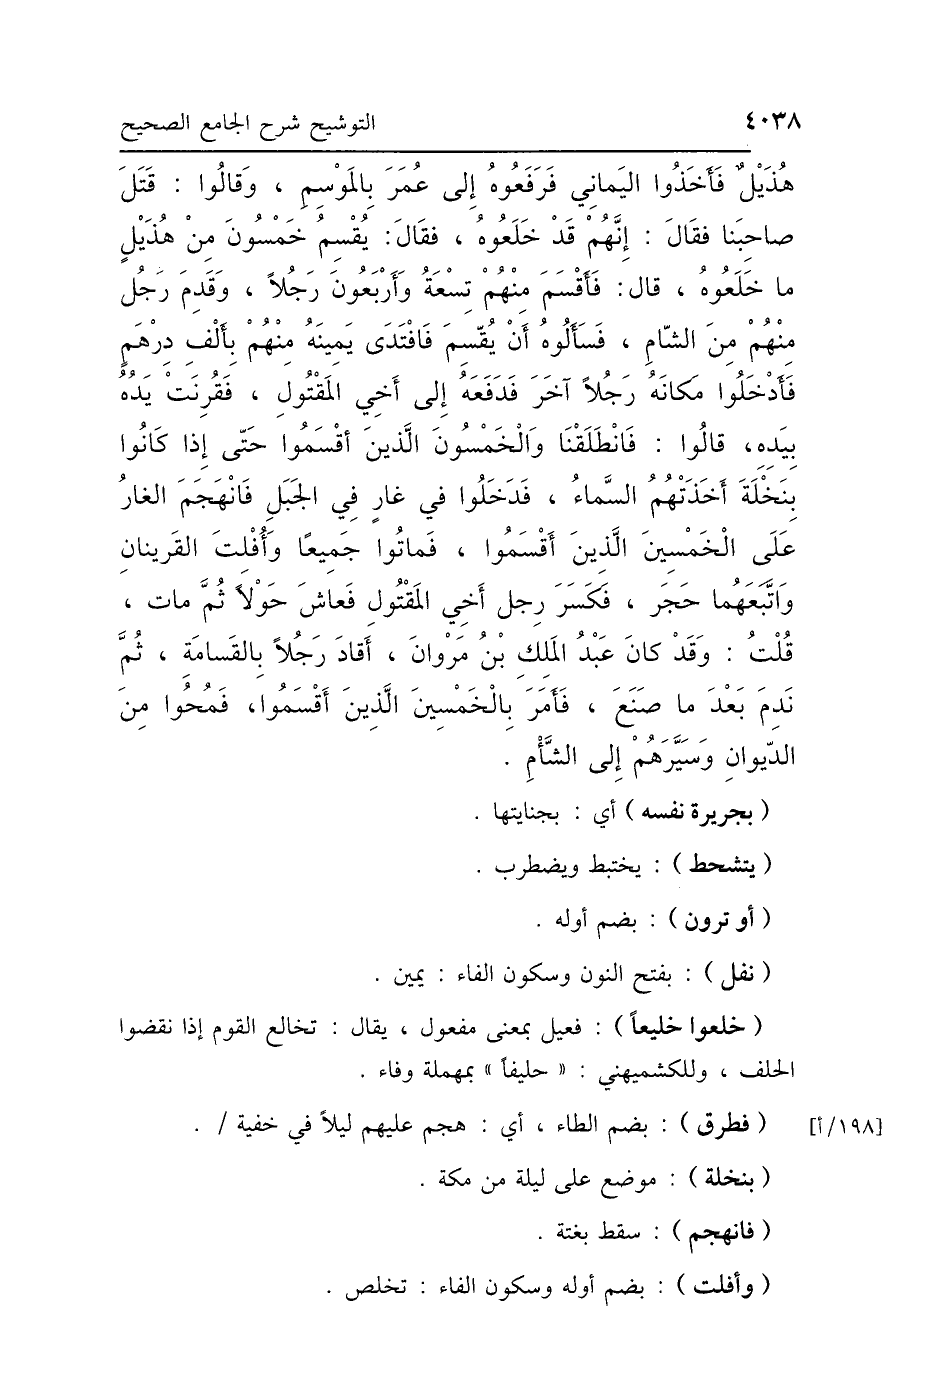 ٤٠٣٨ التوشيح شرح الجامع الصحيح
هُذَيْلٌ فَأَخَذُوا اليَماني فَرَفَعُوهُ إلى عُمَرَ بِالمَوْسِمِ ، وَقالُوا : قَتَلَ
صاحِبَنا فقَالَ : إِنَّهُمْ قَدْ خَلَعُوهُ ، فقَالَ: يُقْسِمُ خَمْسُونَ مِنْ هُذَيْلٍ
ما خَلَعُوهُ ، قال: فَأَقْسَمَ مِنْهُمْ تِسْعَةُ وَأَرْبَعُونَ رَجُلاً ، وَقَدِمَ رَجُل
مِنْهُمْ مِنَ الشّامِ ، فَسَأَلُوهُ أَنْ يُقّسِمَ فَافْتَدَى يَمِينَهُ مِنْهُمْ بِأَلْفِ دِرْهَمٍ
فَأَدْخَلُوا مَكانَهُ رَجُلاً آخَرَ فَدَفَعَهُ إلى أَخي المَقْتُولِ ، فَقُرِنَتْ يَدُهُ
بِيَدِهِ، قالُوا : فَانْطَلَقْنَا وَالْخَمْسُونَ الَّذينَ أقْسَمُوا حَتّى إذا كَانُوا
بِنَخْلَةَ أَخَذَتْهُمُ السَّماءُ ، فَدَخَلُوا في غارٍ فِي الجَبَلِ فَانْهَجَمَ الغارُ
عَلَى الْخَمْسِينَ الَّذِينَ أَقْسَمُوا ، فَماتُوا جَمِيعًا وَأُفْلِتَ القَرينانِ
وَاتَّبَعَهُما حَجَر ، فَكَسَرَ رِجل أخي المَقْتُولِ فَعاشَ حَوْلاً ثُمَّ مات ،
قُلْتُ : وَقَدْ كانَ عَبْدُ المَلِكِ بْنُ مَرْوانَ ، أَقادَ رَجُلاً بِالقَسامَةِ ، ثُمَّ
نَدِمَ بَعْدَ ما صَنَعَ ، فَأَمَرَ بِالْخَمْسِينَ الَّذِينَ أَقْسَمُوا، فَمُحُوا مِنَ
الدّيوانِ وَسَيَّرَهُمْ إلى الشَّأْمِ .
( بجريرة نفسه ) أي : بجنايتها .
( يتشحط ) : يختبط ويضطرب .
( أو ترون ) : بضم أوله .
( نفل ) : بفتح النون وسكون الفاء : يمين .
( خلعوا خليعاً ) : فعيل بمعنى مفعول ، يقال : تخالع القوم إذا نقضوا
الحلف ، وللكشميهني : « حليفاً » بمهملة وفاء .
( فطرق ) : بضم الطاء ، أي : هجم عليهم ليلاً في خفية / . [١٩٨/أ]
( بنخلة ) : موضع على ليلة من مكة .
( فانهجم ) : سقط بغتة .
( وأفلت ) : بضم أوله وسكون الفاء : تخلص .